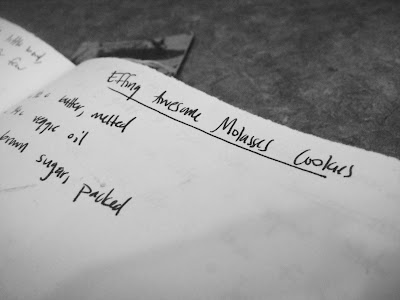 Effing Awesome Molasses Cookies
butter, melted
veggie oil
brown sugar, packed